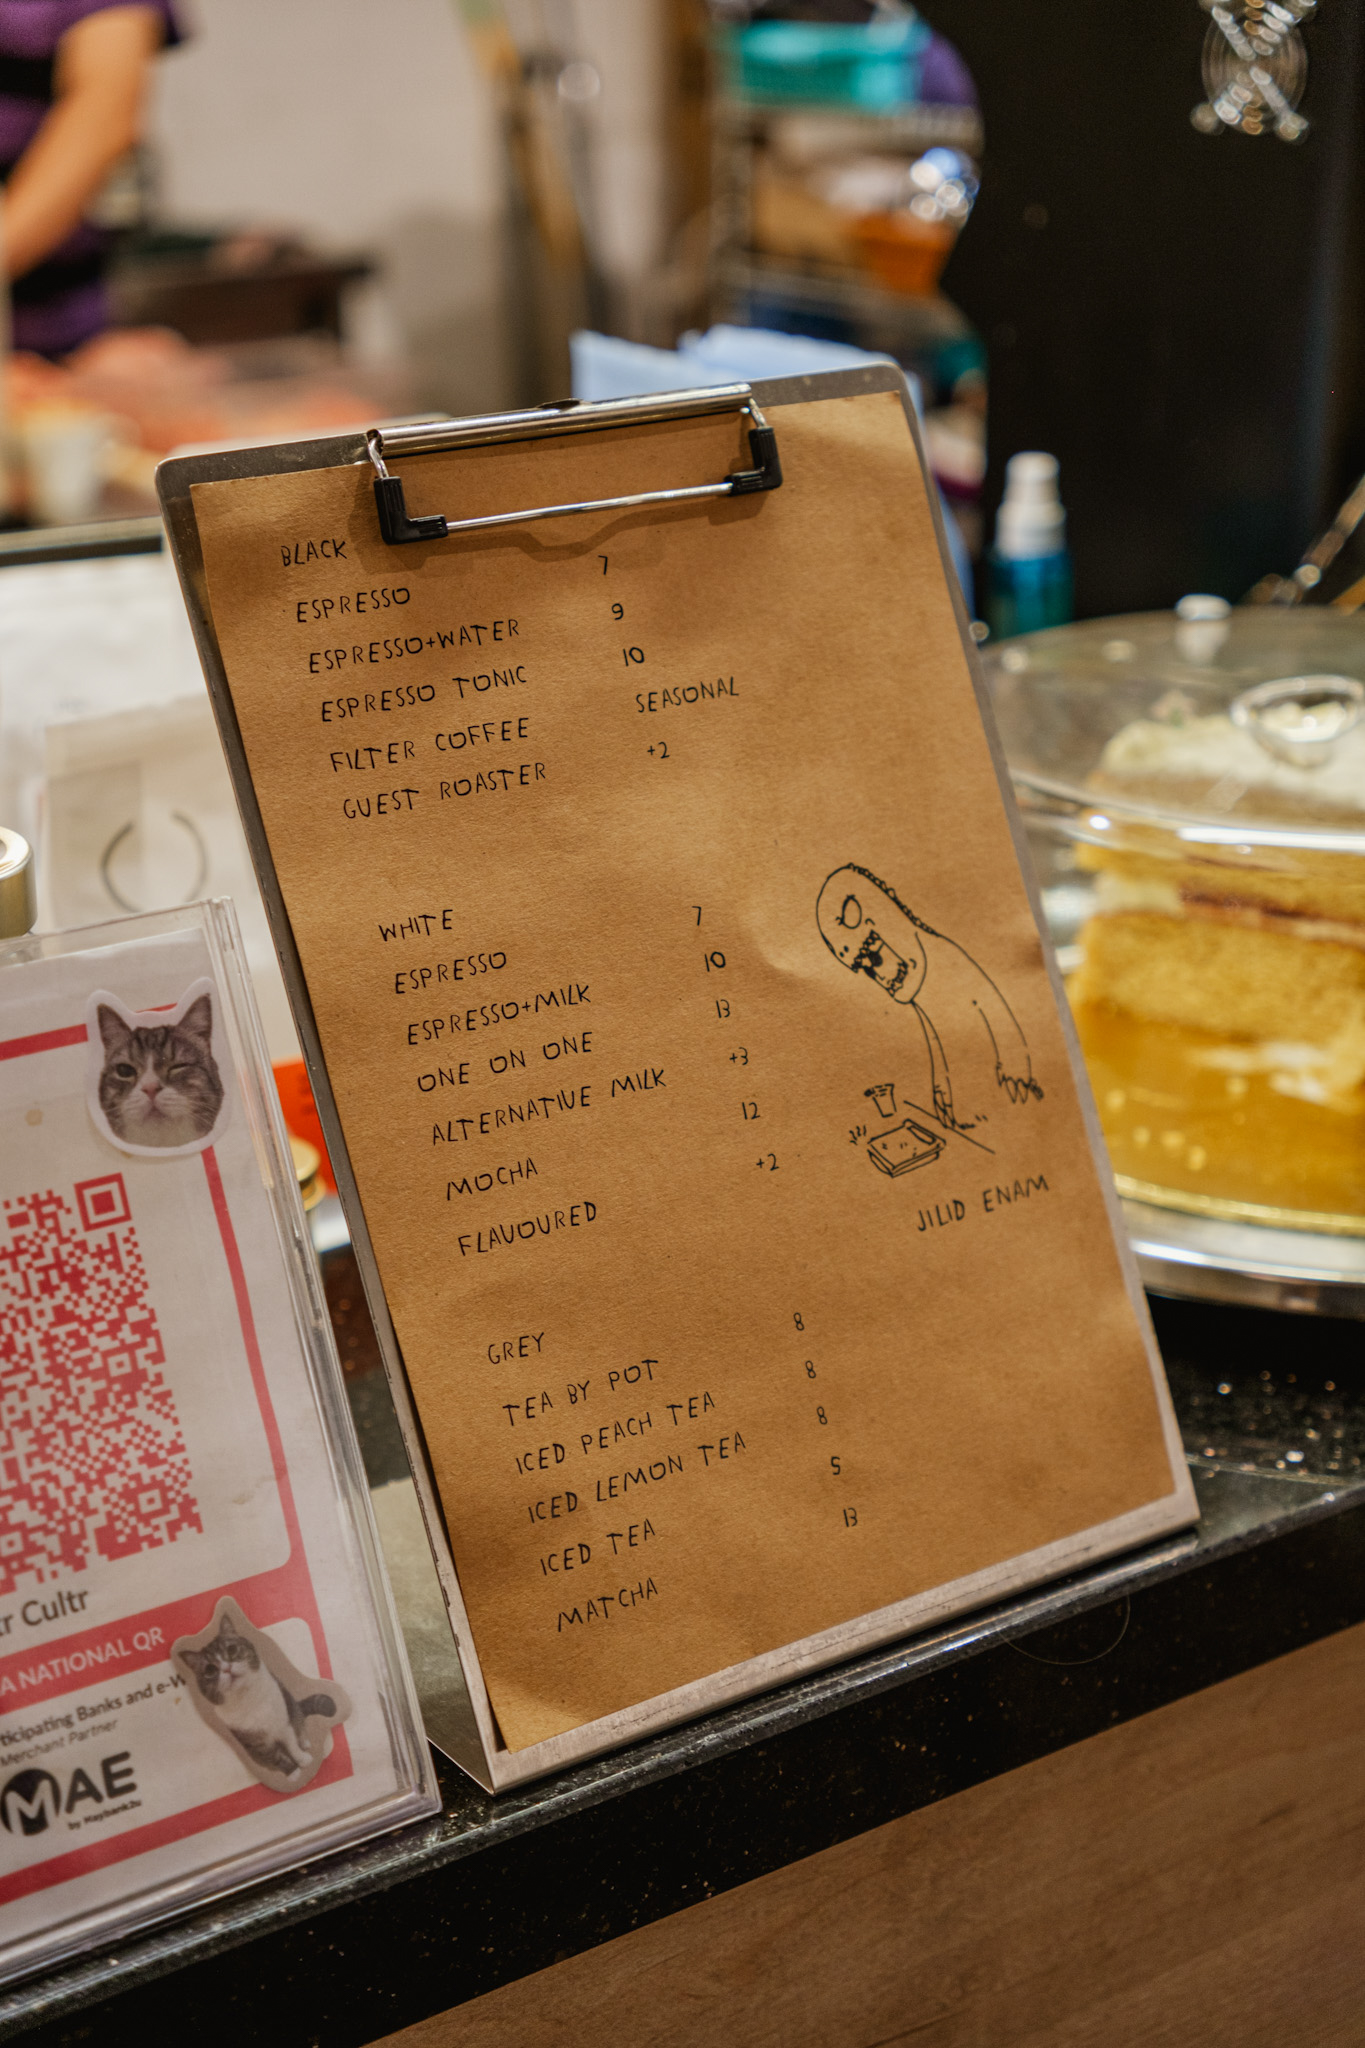 BLACK
ESPRESSO 7
ESPRESSO+WATER 9
ESPRESSO TONIC 10
FILTER COFFEE SEASONAL
GUEST ROASTER +2
WHITE
ESPRESSO 7
ESPRESSO+MILK 10
ONE ON ONE 13
ALTERNATIVE MILK +3
MOCHA 12
FLAVOURED +2
JILID ENAM
GREY
TEA BY POT 8
ICED PEACH TEA 8
ICED LEMON TEA 8
ICED TEA 5
MATCHA 13
tr Cultr
A NATIONAL QR
ticipating Banks and e-W
Merchant Partner
MAE
by Maybank2u